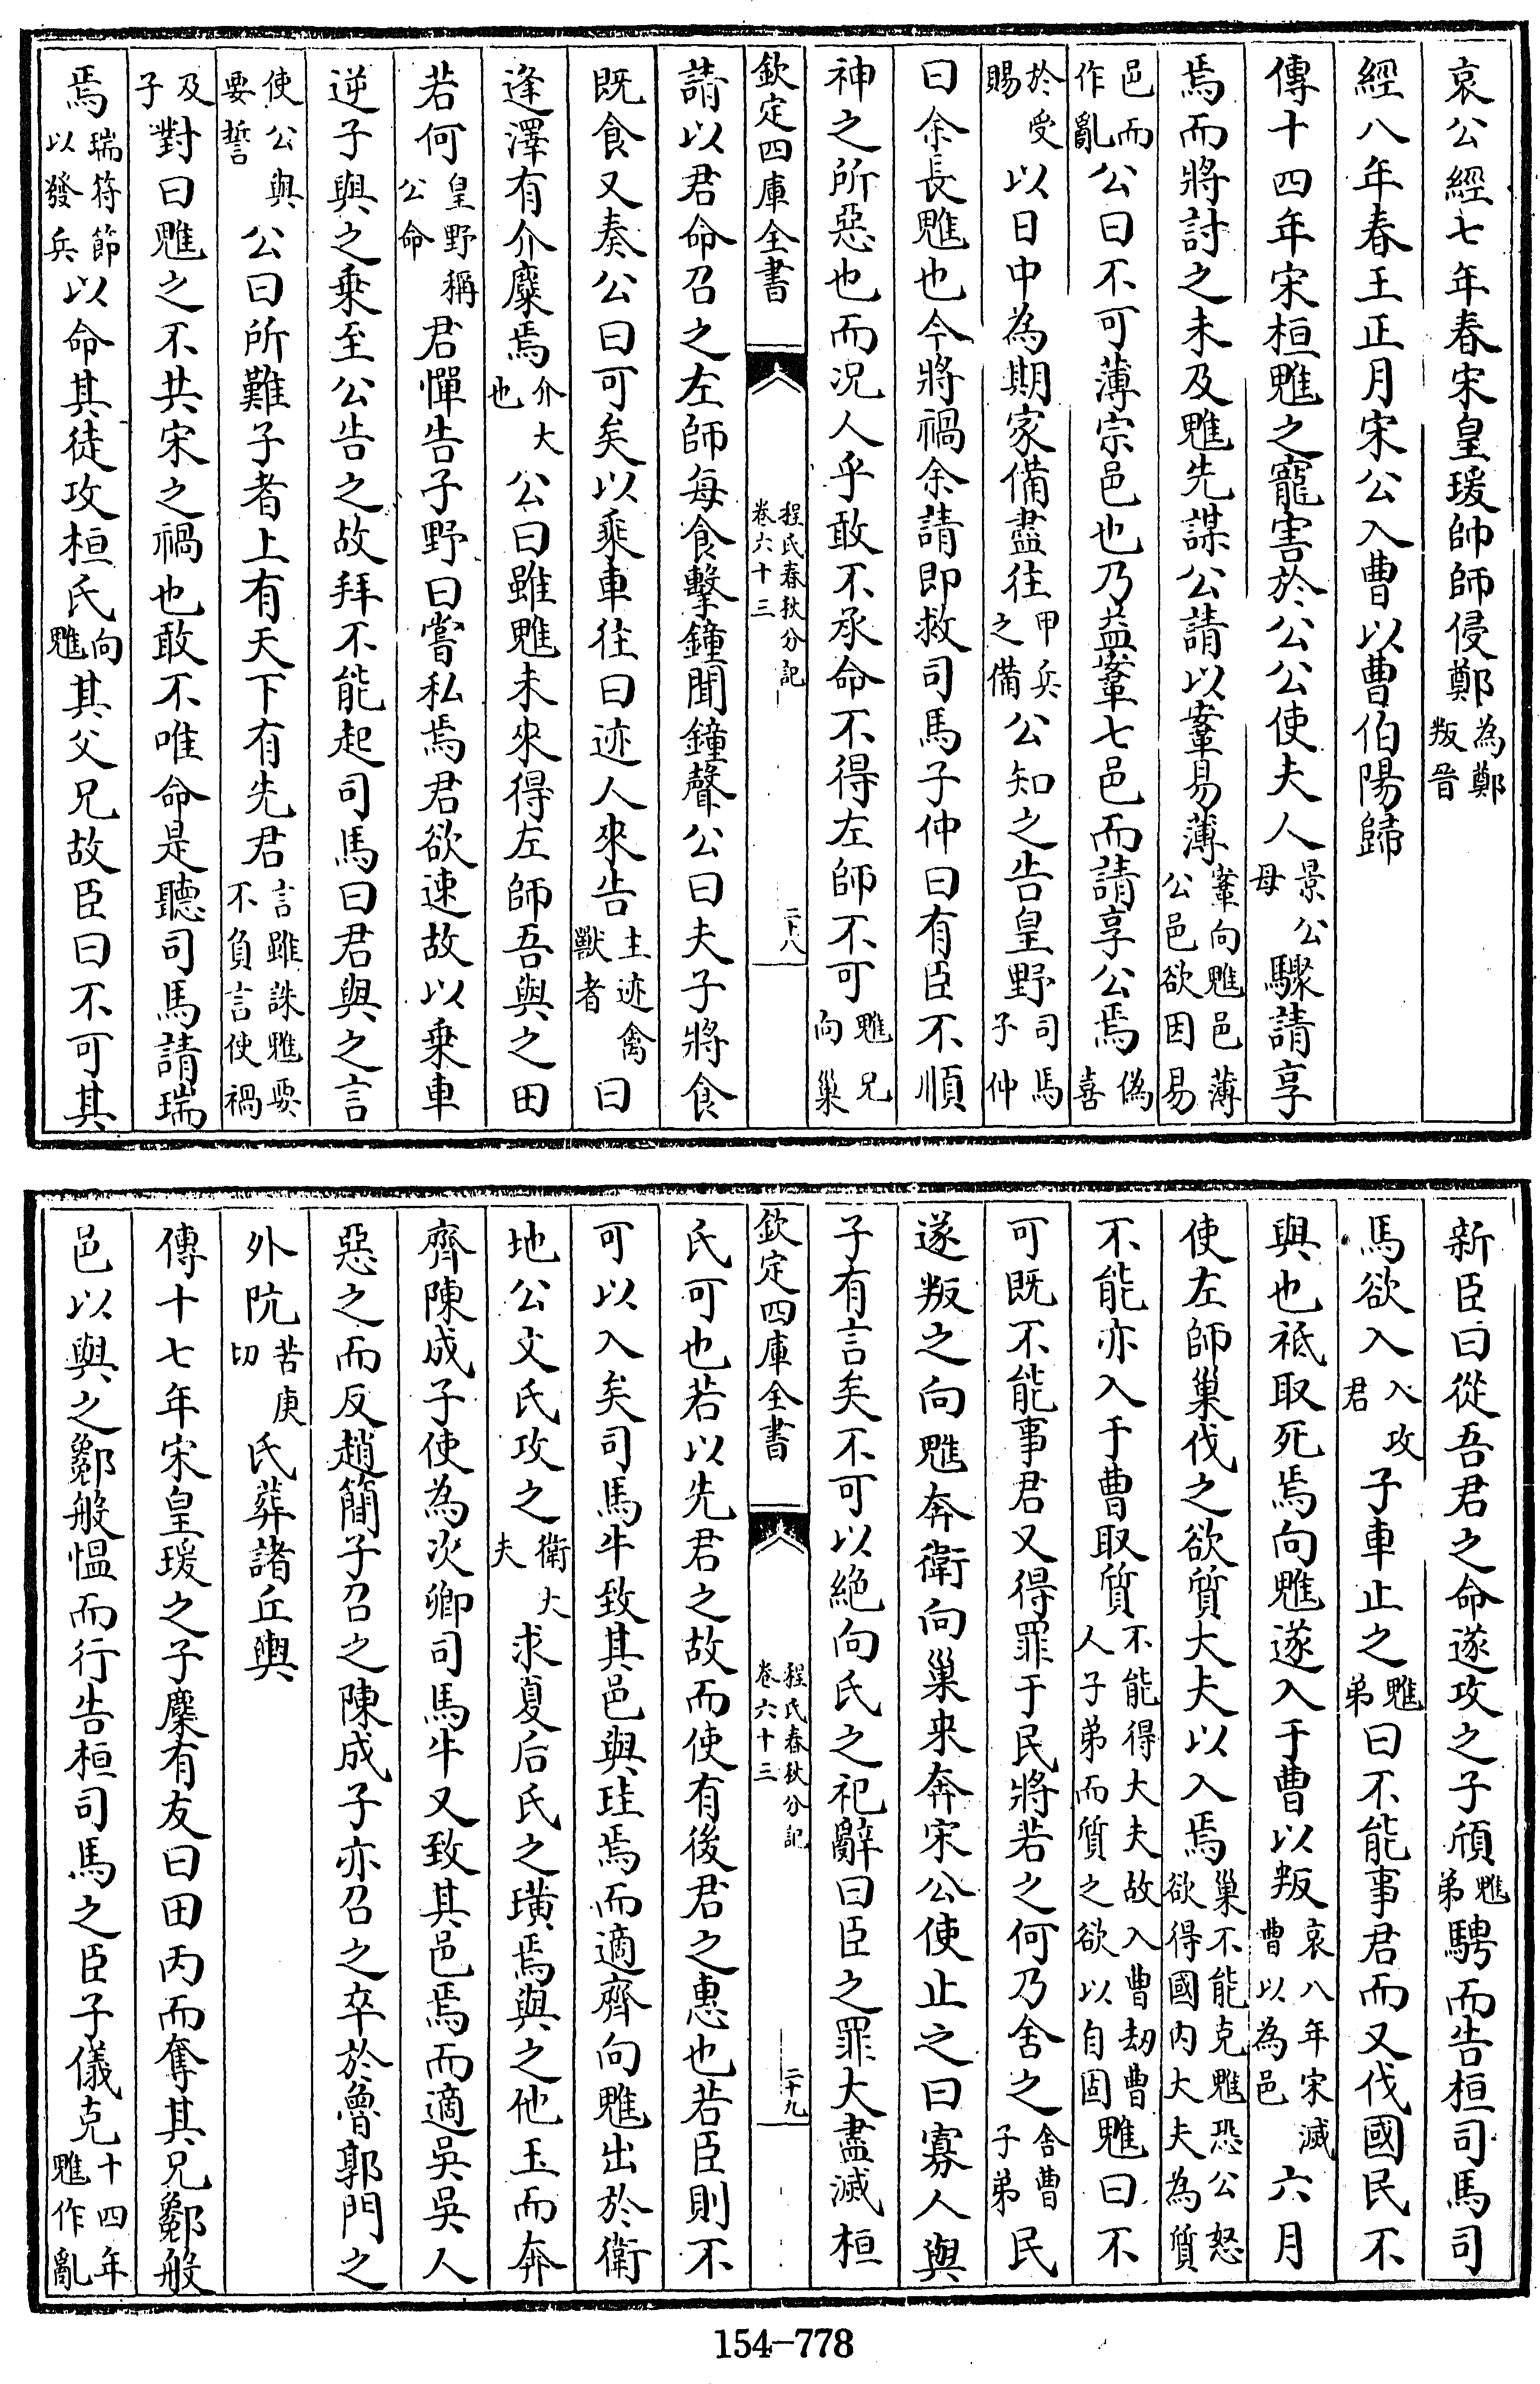 哀公經七年春宋皇瑗帥師侵鄭為鄭叛晉
經八年春王正月宋公入曹以曹伯陽歸
傳十四年宋桓魋之寵害於公公使夫人景公母驟請享
焉而將討之未及魋先謀公請以鞌易薄鞌向魋邑薄公邑欲因易
邑而作亂公曰不可薄宗邑也乃益鞌七邑而請享公焉偽喜
於受賜以日中為期家備盡往甲兵之備公知之告皇野司馬子仲
曰余長魋也今將禍余請即救司馬子仲曰有臣不順
神之所惡也而况人乎敢不承命不得左師不可魋兄向巢
欽定四庫全書 程氏春秋分記卷六十三 二十八
請以君命召之左師每食擊鐘聞鐘聲公曰夫子將食
既食又奏公曰可矣以乘車往曰迹人來告主迹禽獸者曰
逢澤有介麋焉介大也公曰雖魋未來得左師吾與之田
若何皇野稱公命君憚告子野曰嘗私焉君欲速故以乗車
逆子與之乗至公告之故拜不能起司馬曰君與之言
使公與要誓公曰所難子者上有天下有先君言雖誅魋要不負言使禍
及子對曰魋之不共宋之禍也敢不唯命是聽司馬請瑞
焉瑞符節以發兵以命其徒攻桓氏向魋其父兄故臣曰不可其
新臣曰從吾君之命遂攻之子頎魋弟騁而告桓司馬司
馬欲入入攻君子車止之魋弟曰不能事君而又伐國民不
與也祇取死焉向魋遂入于曹以叛哀八年宋滅曹以為邑六月
使左師巢伐之欲質大夫以入焉巢不能克魋恐公怒欲得國内大夫為質
不能亦入于曹取質不能得大夫故入曹劫曹人子弟而質之欲以自固魋曰不
可既不能事君又得罪于民將若之何乃舍之舍曹子弟民
遂叛之向魋奔衛向巢来奔宋公使止之曰寡人與
子有言矣不可以絶向氏之祀辭曰臣之罪大盡滅桓
欽定四庫全書 程氏春秋分記卷六十三 二十九
氏可也若以先君之故而使有後君之惠也若臣則不
可以入矣司馬牛致其邑與珪焉而適齊向魋出於衛
地公文氏攻之衛大夫求夏后氏之璜焉與之他玉而奔
齊陳成子使為次卿司馬牛又致其邑焉而適吳吳人
惡之而反趙簡子召之陳成子亦召之卒於魯郭門之
外阬苦庚切氏葬諸丘輿
傳十七年宋皇瑗之子麇有友曰田丙而奪其兄酁般
邑以與之酁般愠而行告桓司馬之臣子儀克十四年魋作亂
154-778